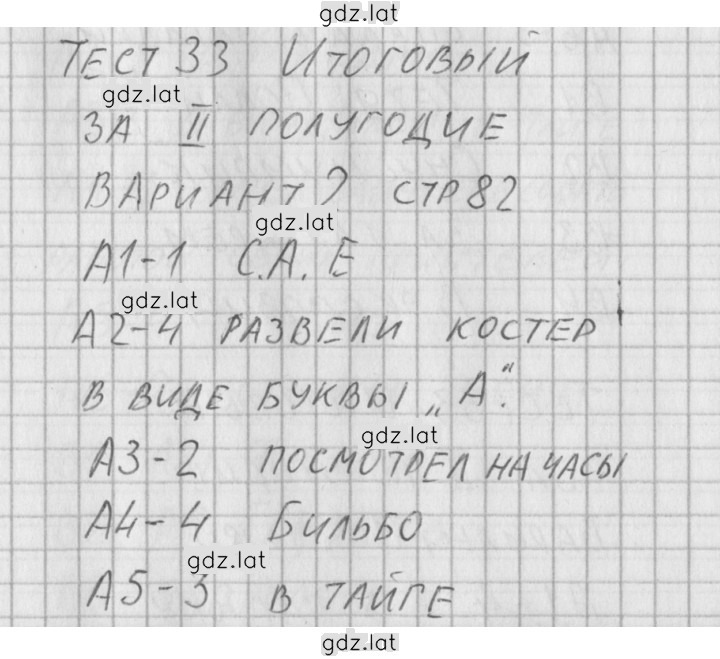 gdz.lat
ТЕСТ 33 ИТОГОВЫЙ
gdz.lat
ЗА II ПОЛУГОДИЕ
ВАРИАНТ 2 СТР 82
gdz.lat
А1-1 С.А. Е
gdz.lat
А2-4 РАЗВЕЛИ КОСТЕР
В ВИДЕ БУКВЫ „А“.
gdz.lat
А3-2 ПОСМОТРЕЛ НА ЧАСЫ
А4-4 БИЛЬБО
gdz.lat
А5-3 В ТАЙГЕ
gdz.lat